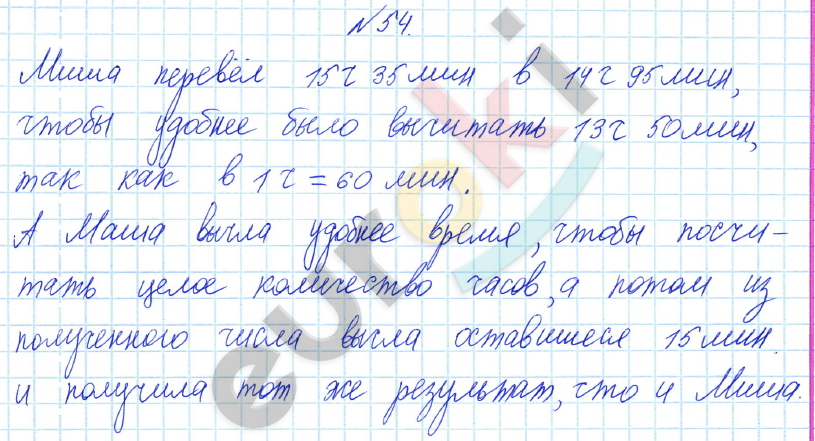 №54.
Миша перевёл 15ч 35мин в 14ч 95мин,
чтобы удобнее было вычитать 13ч 50мин,
так как в 1ч = 60 мин.
А Маша вычла удобнее время, чтобы посчи-
тать целое количество часов, а потом из
полученного числа вычла оставшиеся 15мин.
и получила тот же результат, что и Миша.
euroki